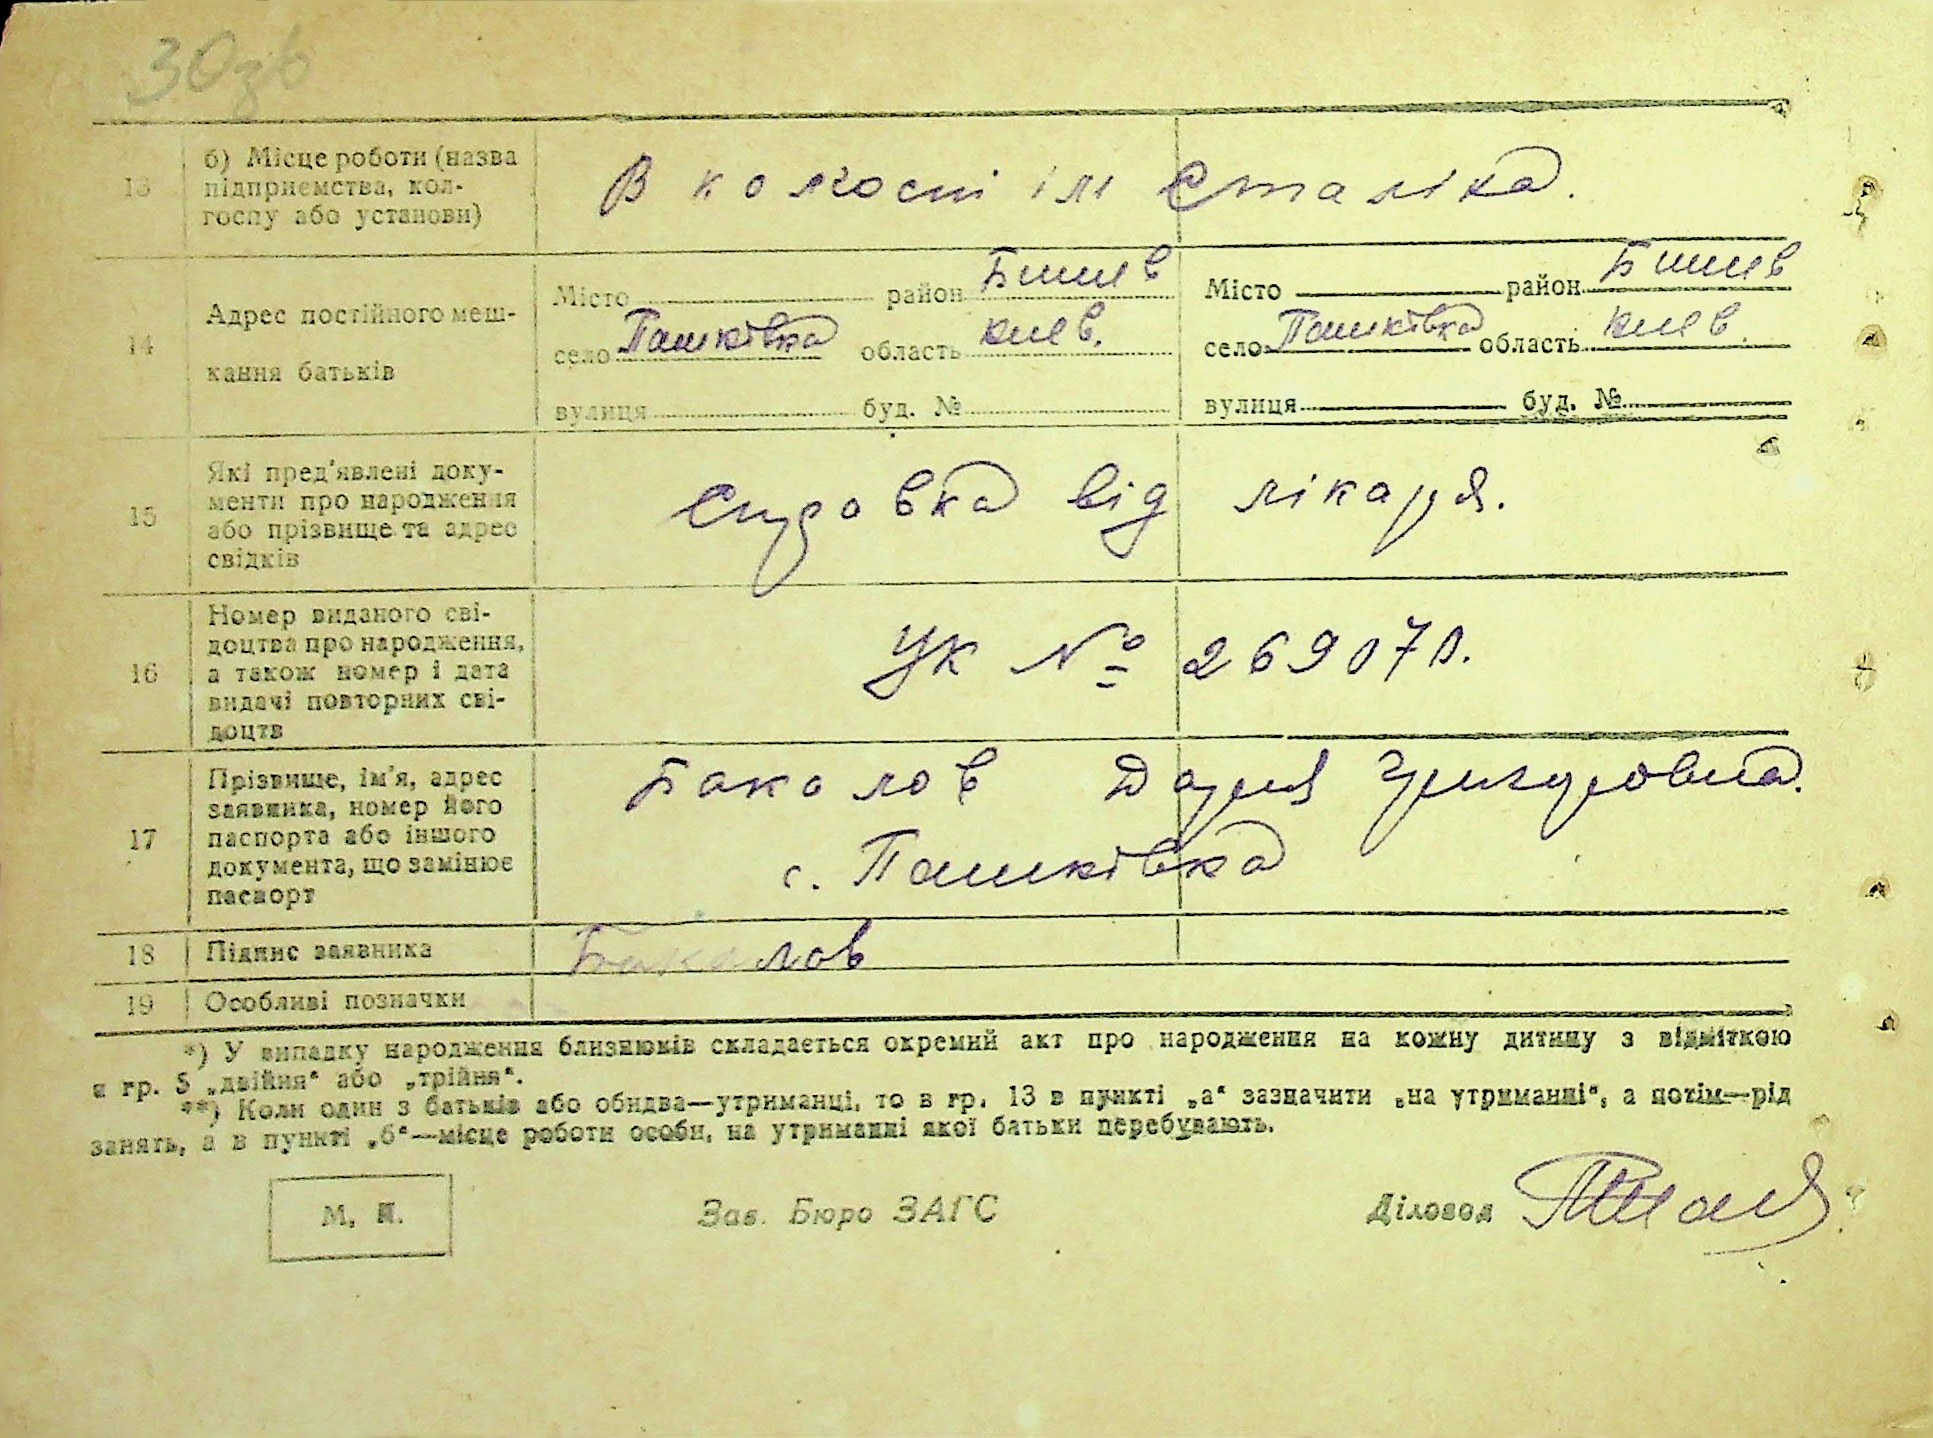 30зв
13 б) Місце роботи (назва підприємства, кол-госпу або установи) В колгоспі ім Сталіна.
14 Адрес постійного меш-кання батьків
Місто район Бишів
село Пашківка область київ.
вулиця буд. №
Місто район Бишів
село Пашківка область київ.
вулиця буд. №
15 Які пред'явлені доку-
менти про народження
або прізвище та адрес
свідків
Справка від лікаря.
16 Номер виданого сві-
доцтва про народження,
а також номер і дата
видачі повторних сві-
доцтв
УК №
17 Прізвище, ім'я, адрес
заявника, номер його
паспорта або іншого
документа, що замінює
паспорт
Бакалов Дария Григоровна.
с. Пашківка
18 Підпис заявника Бакалов
19 Особливі позначки
*) У випадку народження близнюків складається окремий акт про народження на кожну дитину з відміткою
в гр. 5 „двійня" або „трійня".
**) Коли один з батьків або обидва—утриманці, то в гр. 13 в пункті „а" зазначити „на утриманні", а потім—рід
занять, а в пункті „б"—місце роботи особи, на утриманні якої батьки перебувають.
М. П. Зав. Бюро ЗАГС Діловод